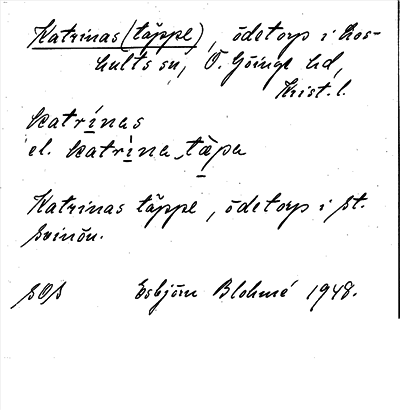 Katrinas (täppe), ödetorp i Hos-
hults sn, Ö. Göinge hd,
Krist. l.
katrínas
el. katrína täpa
Katrinas täppe, ödetorp i St.
Svinön.
SOS Esbjörn Blohmé 1948.